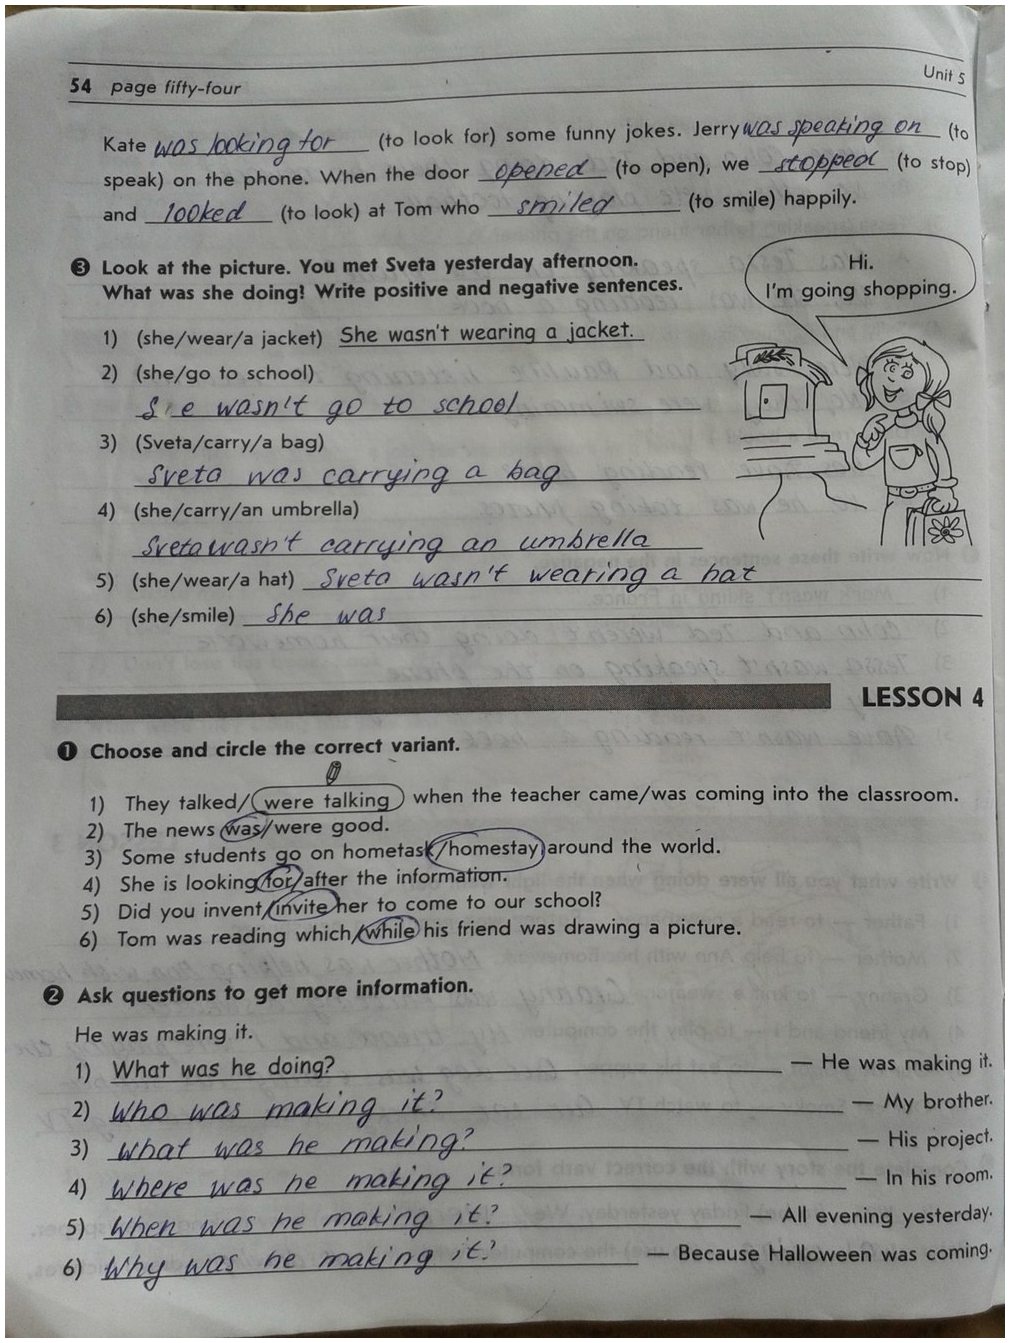 54 page fifty-four
Unit 5
Kate was looking for (to look for) some funny jokes. Jerry was speaking on (to
speak) on the phone. When the door opened (to open), we stopped (to stop)
and looked (to look) at Tom who smiled (to smile) happily.
❸ Look at the picture. You met Sveta yesterday afternoon.
What was she doing? Write positive and negative sentences.
Hi.
I'm going shopping.
1) (she/wear/a jacket) She wasn't wearing a jacket.
2) (she/go to school)
S e wasn't go to school
3) (Sveta/carry/a bag)
Sveta was carrying a bag
4) (she/carry/an umbrella)
Sveta wasn't carrying an umbrella
5) (she/wear/a hat) Sveta wasn't wearing a hat
6) (she/smile) She was
LESSON 4
❶ Choose and circle the correct variant.
1) They talked/were talking when the teacher came/was coming into the classroom.
2) The news was/were good.
3) Some students go on hometask/homestay around the world.
4) She is looking for/after the information.
5) Did you invent/invite her to come to our school?
6) Tom was reading which/while his friend was drawing a picture.
❷ Ask questions to get more information.
He was making it.
1) What was he doing? — He was making it.
2) Who was making it? — My brother.
3) What was he making? — His project.
4) Where was he making it? — In his room.
5) When was he making it? — All evening yesterday.
6) Why was he making it? — Because Halloween was coming.